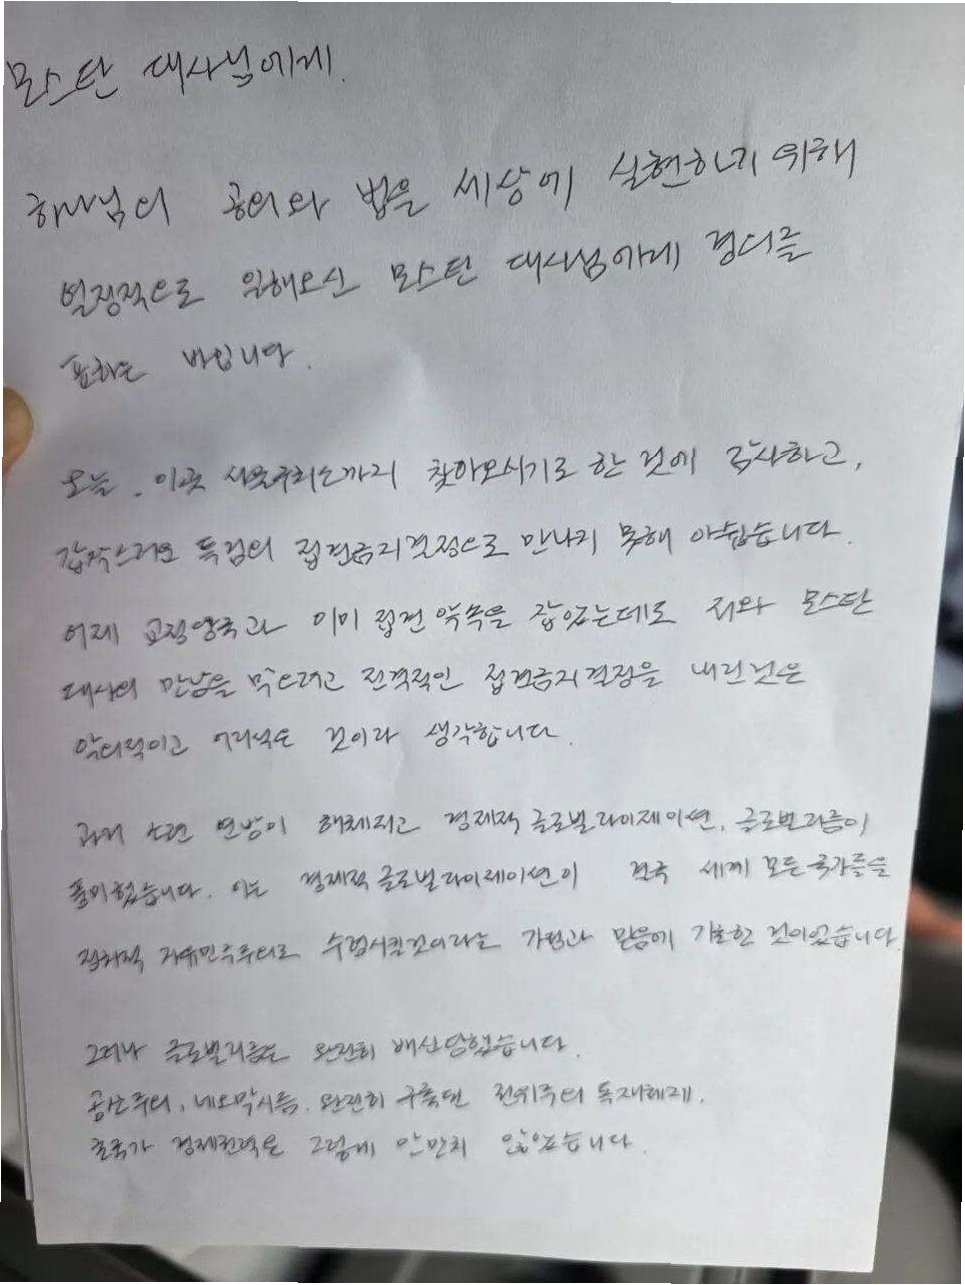 모스탄 대사님에게.
하나님의 공의와 법을 세상에 실현하기 위해
열정적으로 일해오신 모스탄 대사님에게 경의를
표하는 바입니다.
오늘. 이곳 서울구치소까지 찾아오시기로 한 것에 감사하고,
갑작스러운 특검의 접견금지결정으로 만나지 못해 아쉽습니다.
어제 교정당국과 이미 접견 약속을 잡았는데도 저와 모스탄
대사의 만남을 막으려고 전격적인 접견금지결정을 내린것은
악의적이고 어리석은 것이라 생각합니다.
과거 소련 연방이 해체되고 경제적 글로벌라이제이션, 글로벌리즘이
풍미했습니다. 이는 경제적 글로벌라이제이션이 결국 세계 모든 국가들을
정치적 자유민주주의로 수렴시킬것이라는 가정과 믿음에 기초한 것이었습니다.
그러나 글로벌리즘은 완전히 배신당했습니다.
공산주의, 네오막시즘. 완전히 구축된 전위주의 독재체제.
초국가 경제권력은 그렇게 만만치 않았습니다.